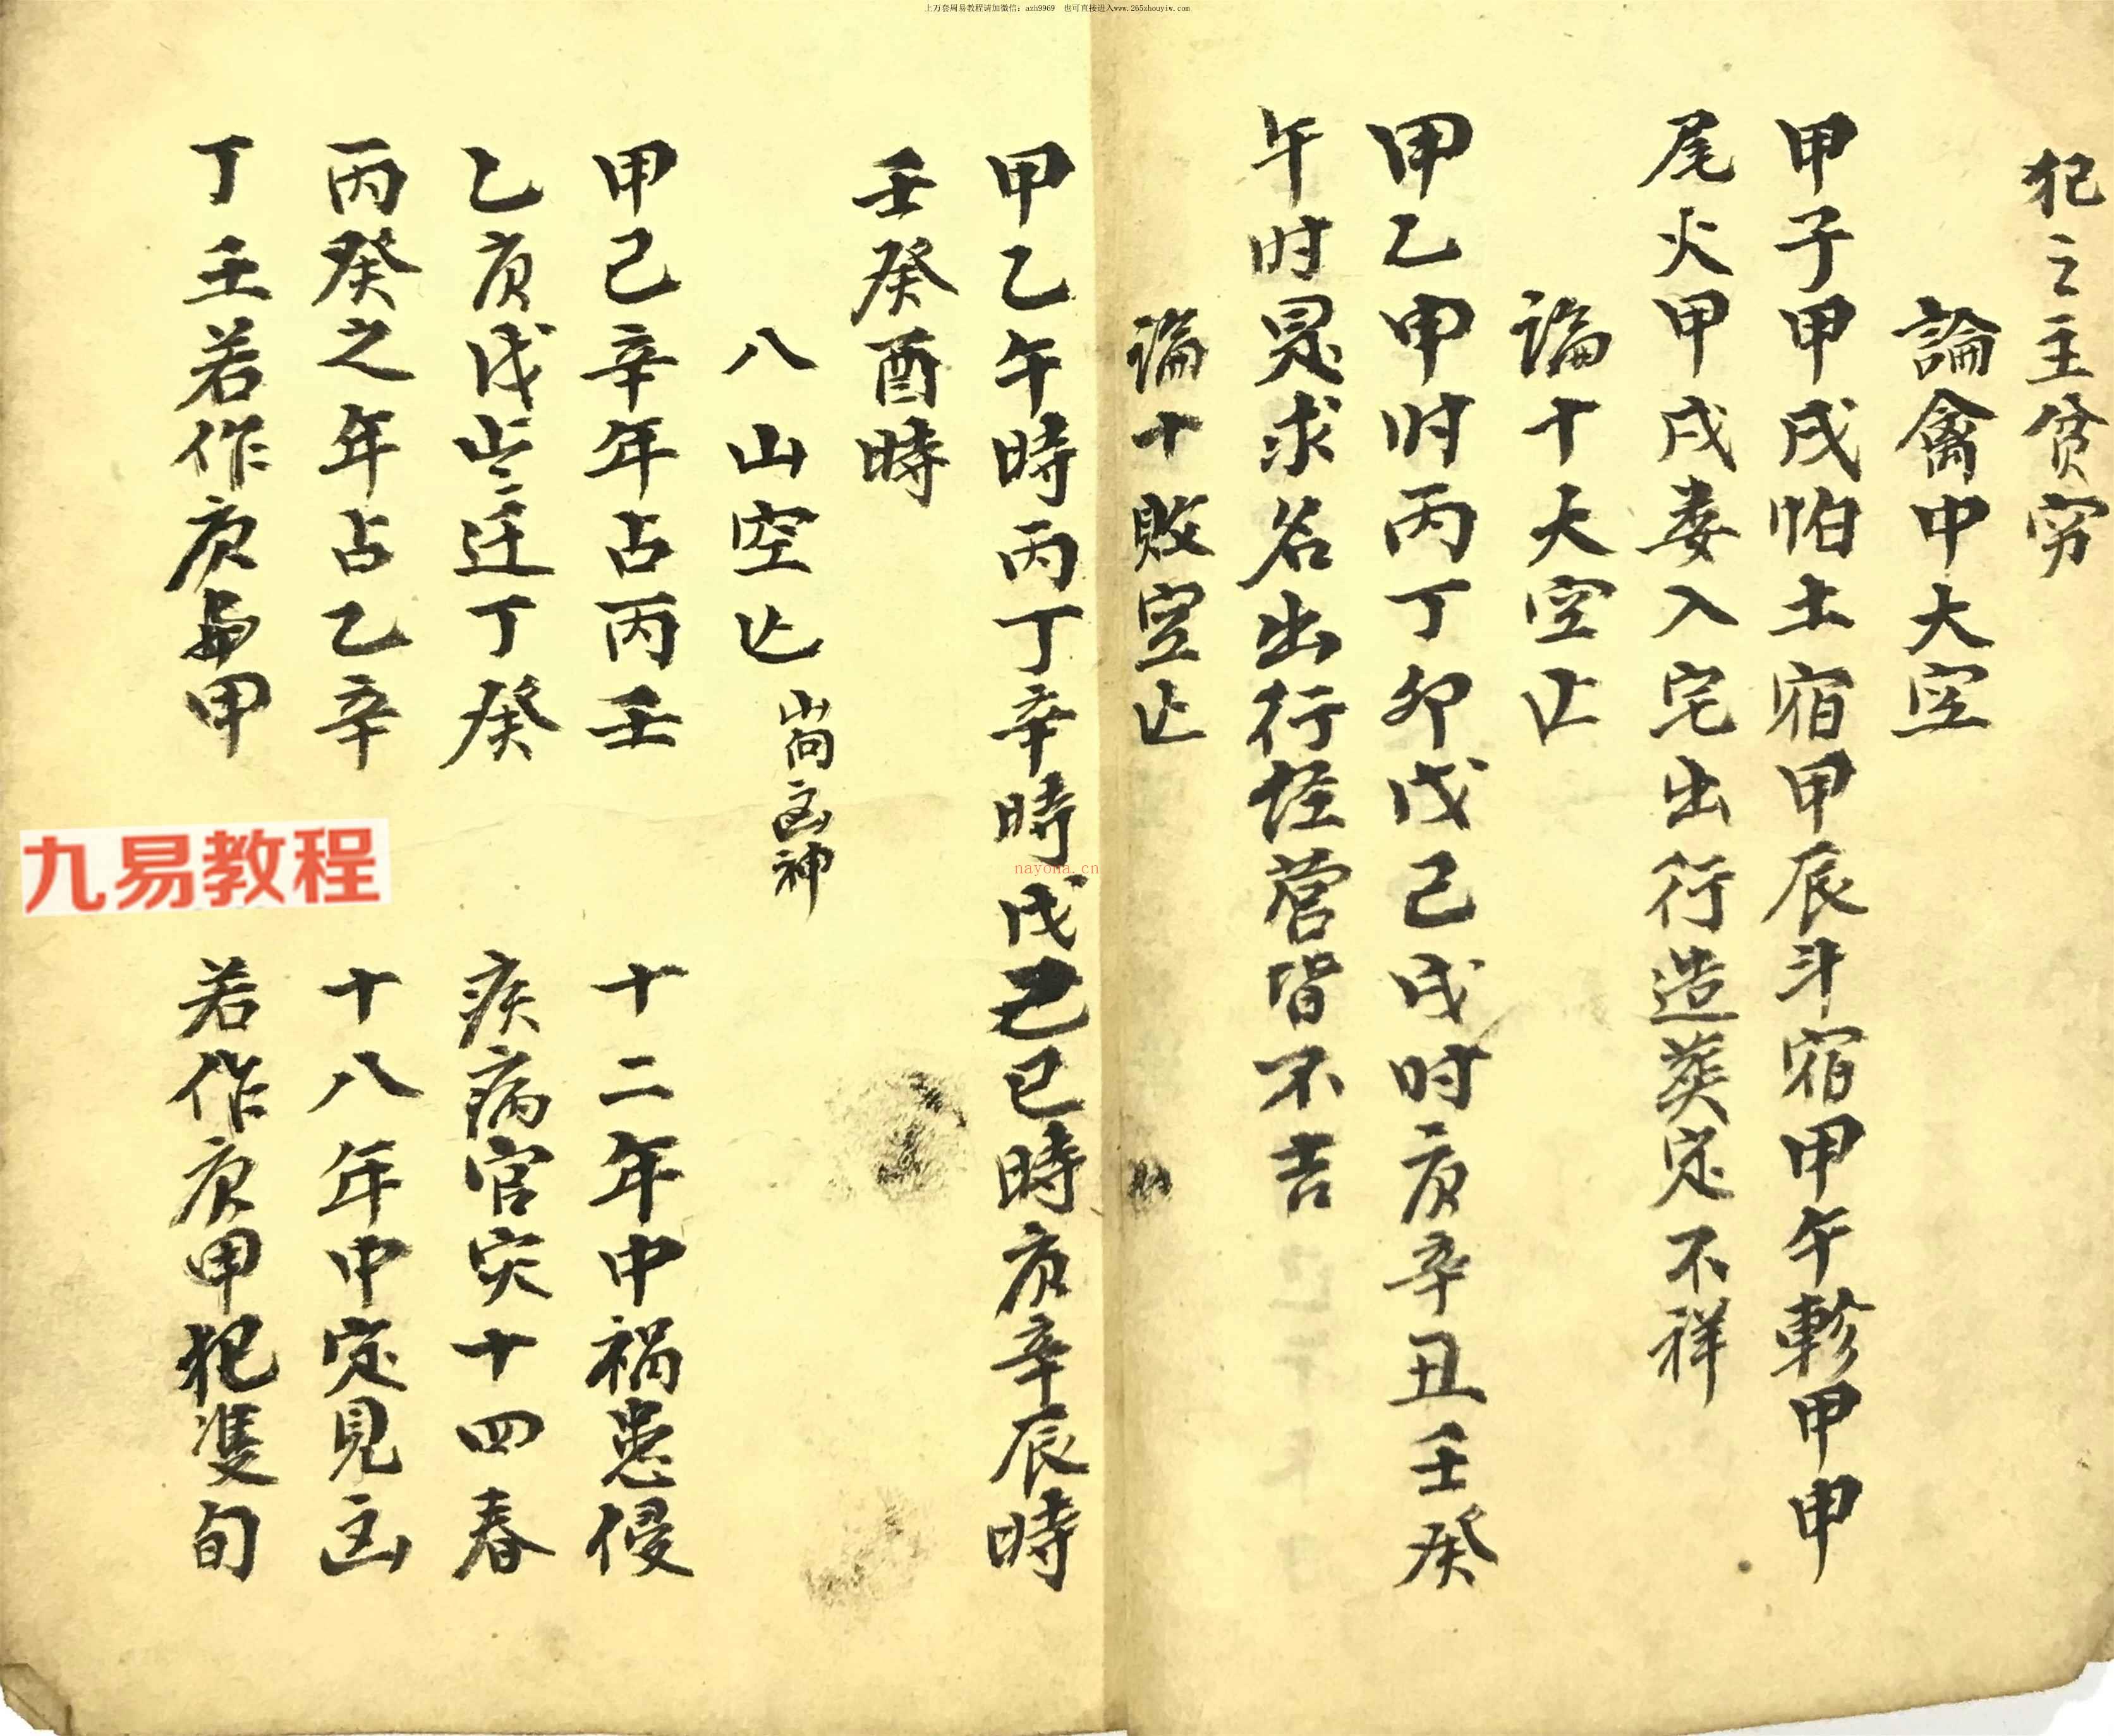 上万套周易教程请加微信：azh9969 也可直接进入www.265zhouyiw.com
犯之主贫穷
論禽中大空
甲子甲戌怕土宿甲辰斗宿甲午軫甲申
尾火甲戌娄入宅出行造葬定不祥
論十大空亡
甲乙申时丙丁卯戊己戌时庚辛丑壬癸
午时是求名出行经营皆不吉
論十败空亡
甲乙午時丙丁辛時戊己巳時庚辛辰時
壬癸酉時
八山空亡 山向凶神
甲己辛年占丙壬 十二年中禍患侵
乙庚戊 迁丁癸 疾病官灾十四春
丙癸之年占乙辛 十八年中定見凶
丁壬若作庚 甲 若作庚甲犯隻旬
九易教程
nayona.cn